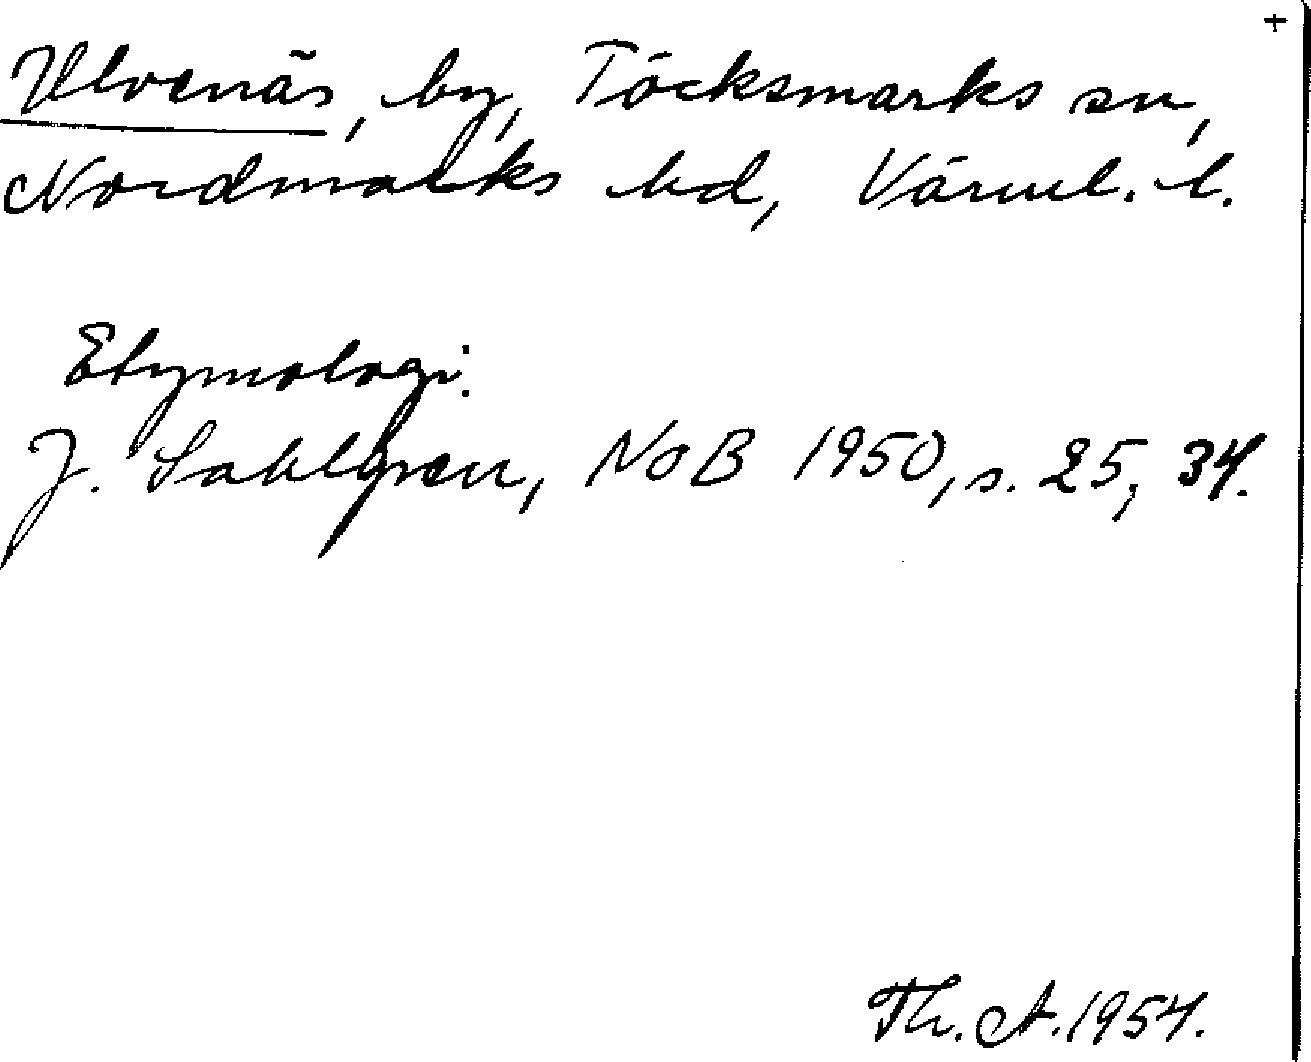 +
Ulvenäs, by, Töcksmarks sn,
Nordmarks hd, Värml. l.
Etymologi.
J. Sahlgren, NoB 1950, s. 25, 34.
Th. A. 1954.